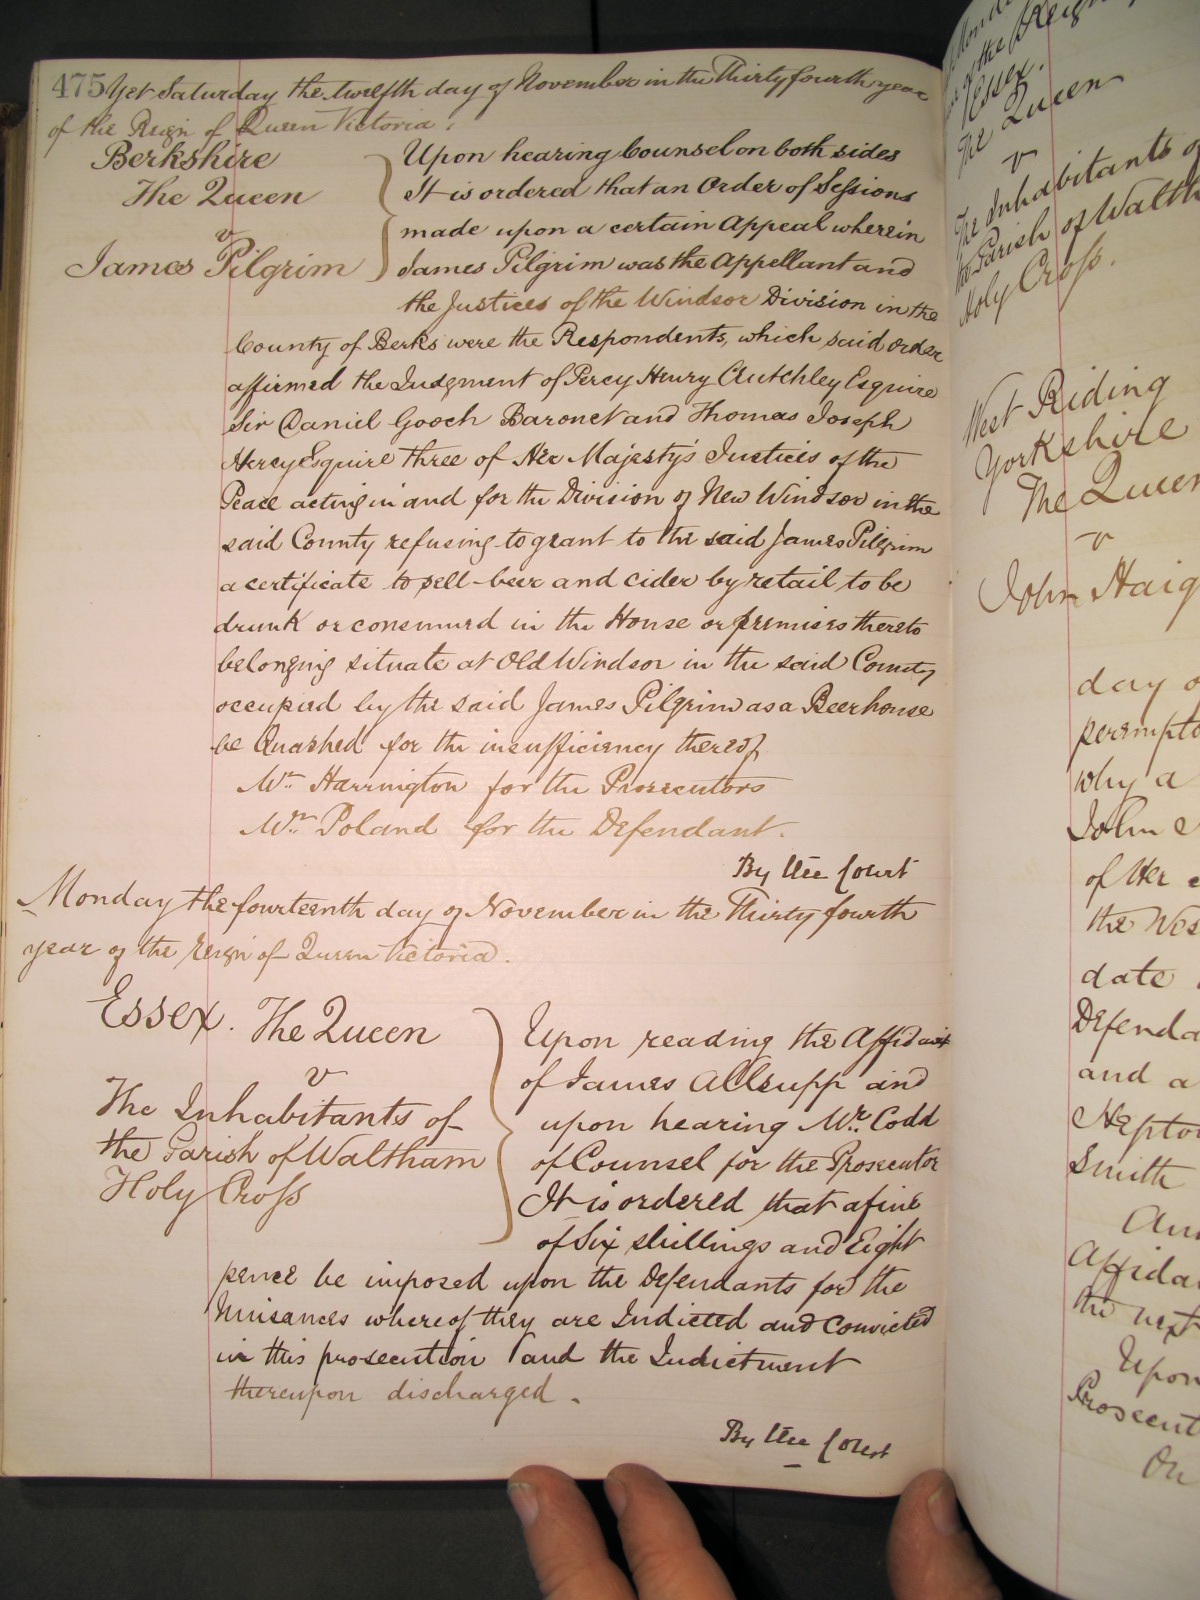 475 Yet Saturday the twelfth day of November in the Thirty fourth year
of the Reign of Queen Victoria.
Berkshire
The Queen
v
James Pilgrim
Upon hearing Counsel on both sides
It is ordered that an Order of Sessions
made upon a certain Appeal wherein
James Pilgrim was the Appellant and
the Justices of the Windsor Division in the
County of Berks were the Respondents, which said order
affirmed the Judgment of Percy Henry Crutchley Esquire
Sir Daniel Gooch Baronet and Thomas Joseph
Hercy Esquire three of Her Majesty's Justices of the
Peace acting in and for the Division of New Windsor in the
said County refusing to grant to the said James Pilgrim
a certificate to sell beer and cider by retail to be
drunk or consumed in the House or premises thereto
belonging situate at Old Windsor in the said County
occupied by the said James Pilgrim as a Beerhouse
be Quashed for the insufficiency thereof
Mr. Harrington for the Prosecutors
Mr. Poland for the Defendant.
By the Court
Monday the fourteenth day of November in the Thirty fourth
year of the Reign of Queen Victoria.
Essex. The Queen
v
The Inhabitants of
the Parish of Waltham
Holy Cross
Upon reading the Affidavit
of James Allsupp and
upon hearing Mr. Codd
of Counsel for the Prosecutor
It is ordered that a fine
of Six shillings and Eight
pence be imposed upon the Defendants for the
Nuisances whereof they are Indicted and Convicted
in this prosecution and the Indictment
thereupon discharged.
By the Court
of the Reign
Essex.
The Queen
v
The Inhabitants of
the Parish of Walth
Holy Cross.
West Riding
Yorkshire
The Queen
v
John Haig
day o
perempto
why a
John
of Her
the Wes
date
Defenda
and a
Hepto
Smith
Affida
the next
Upon
Prosecut
On